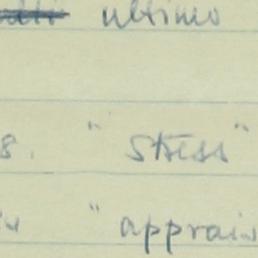 ultimo
8. "Stress"
" apprais